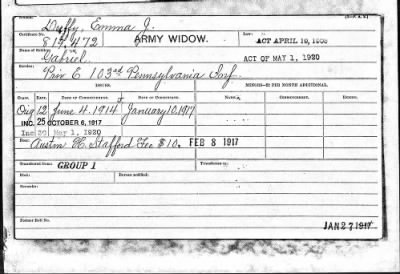 Duffy, Emma J.
Certificate No.
817,472
ARMY WIDOW.
ACT APRIL 19, 1908
Gabriel
ACT OF MAY 1, 1920
Service:
Priv E 103rd Pennsylvania Inf.
ISSUES.
MINORS—$2 PER MONTH ADDITIONAL.
CLASS. RATE. DATE OF COMMENCEMENT. DATE OF CERTIFICATE. NAMES. COMMENCEMENT. ENDING.
Orig 12 June 4, 1914 January 10, 1917
INC. 25 OCTOBER 6, 1917
Inc 30 May 1, 1920
Austin H. Stafford Fee $10. FEB 8 1917
Transferred from: GROUP 1 Transferred to:
Died: Bureau notified:
Remarks:
Former Roll No.
JAN 27 1917